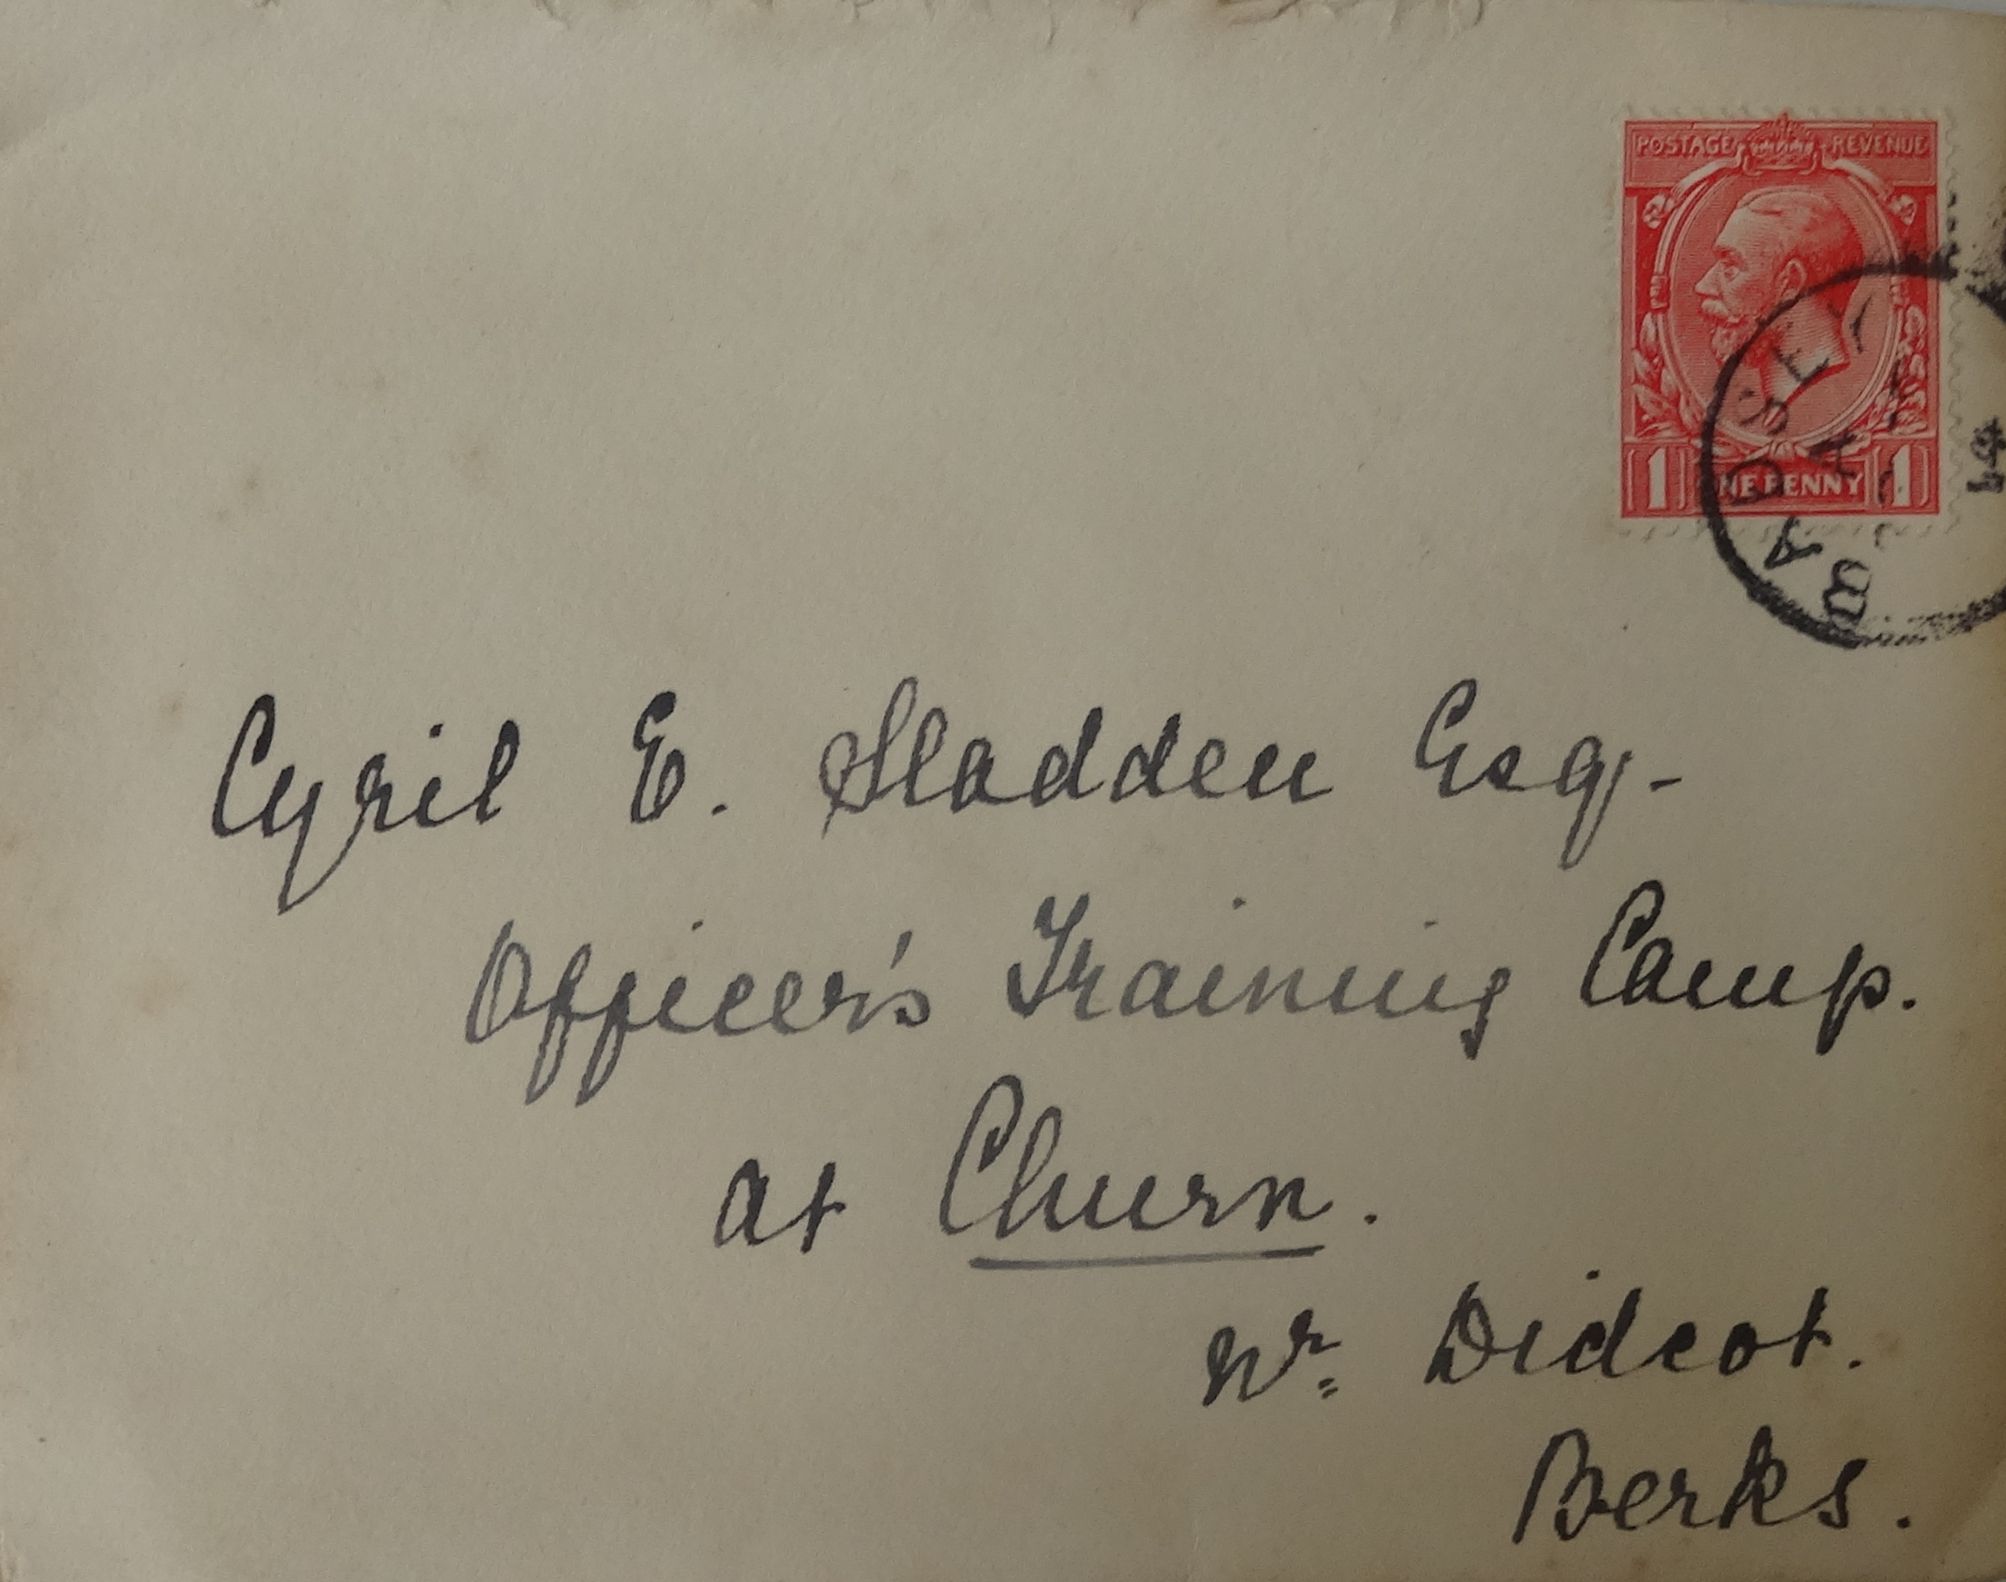 POSTAGE REVENUE
1 ONE PENNY 1
BADSEY
A
14
Cyril E. Sladden Esq-
Officer's Training Camp.
at Churn.
Nr. Didcot.
Berks.